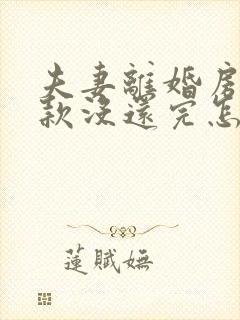 夫妻離婚房
款沒還完怎
蓮賦嫵